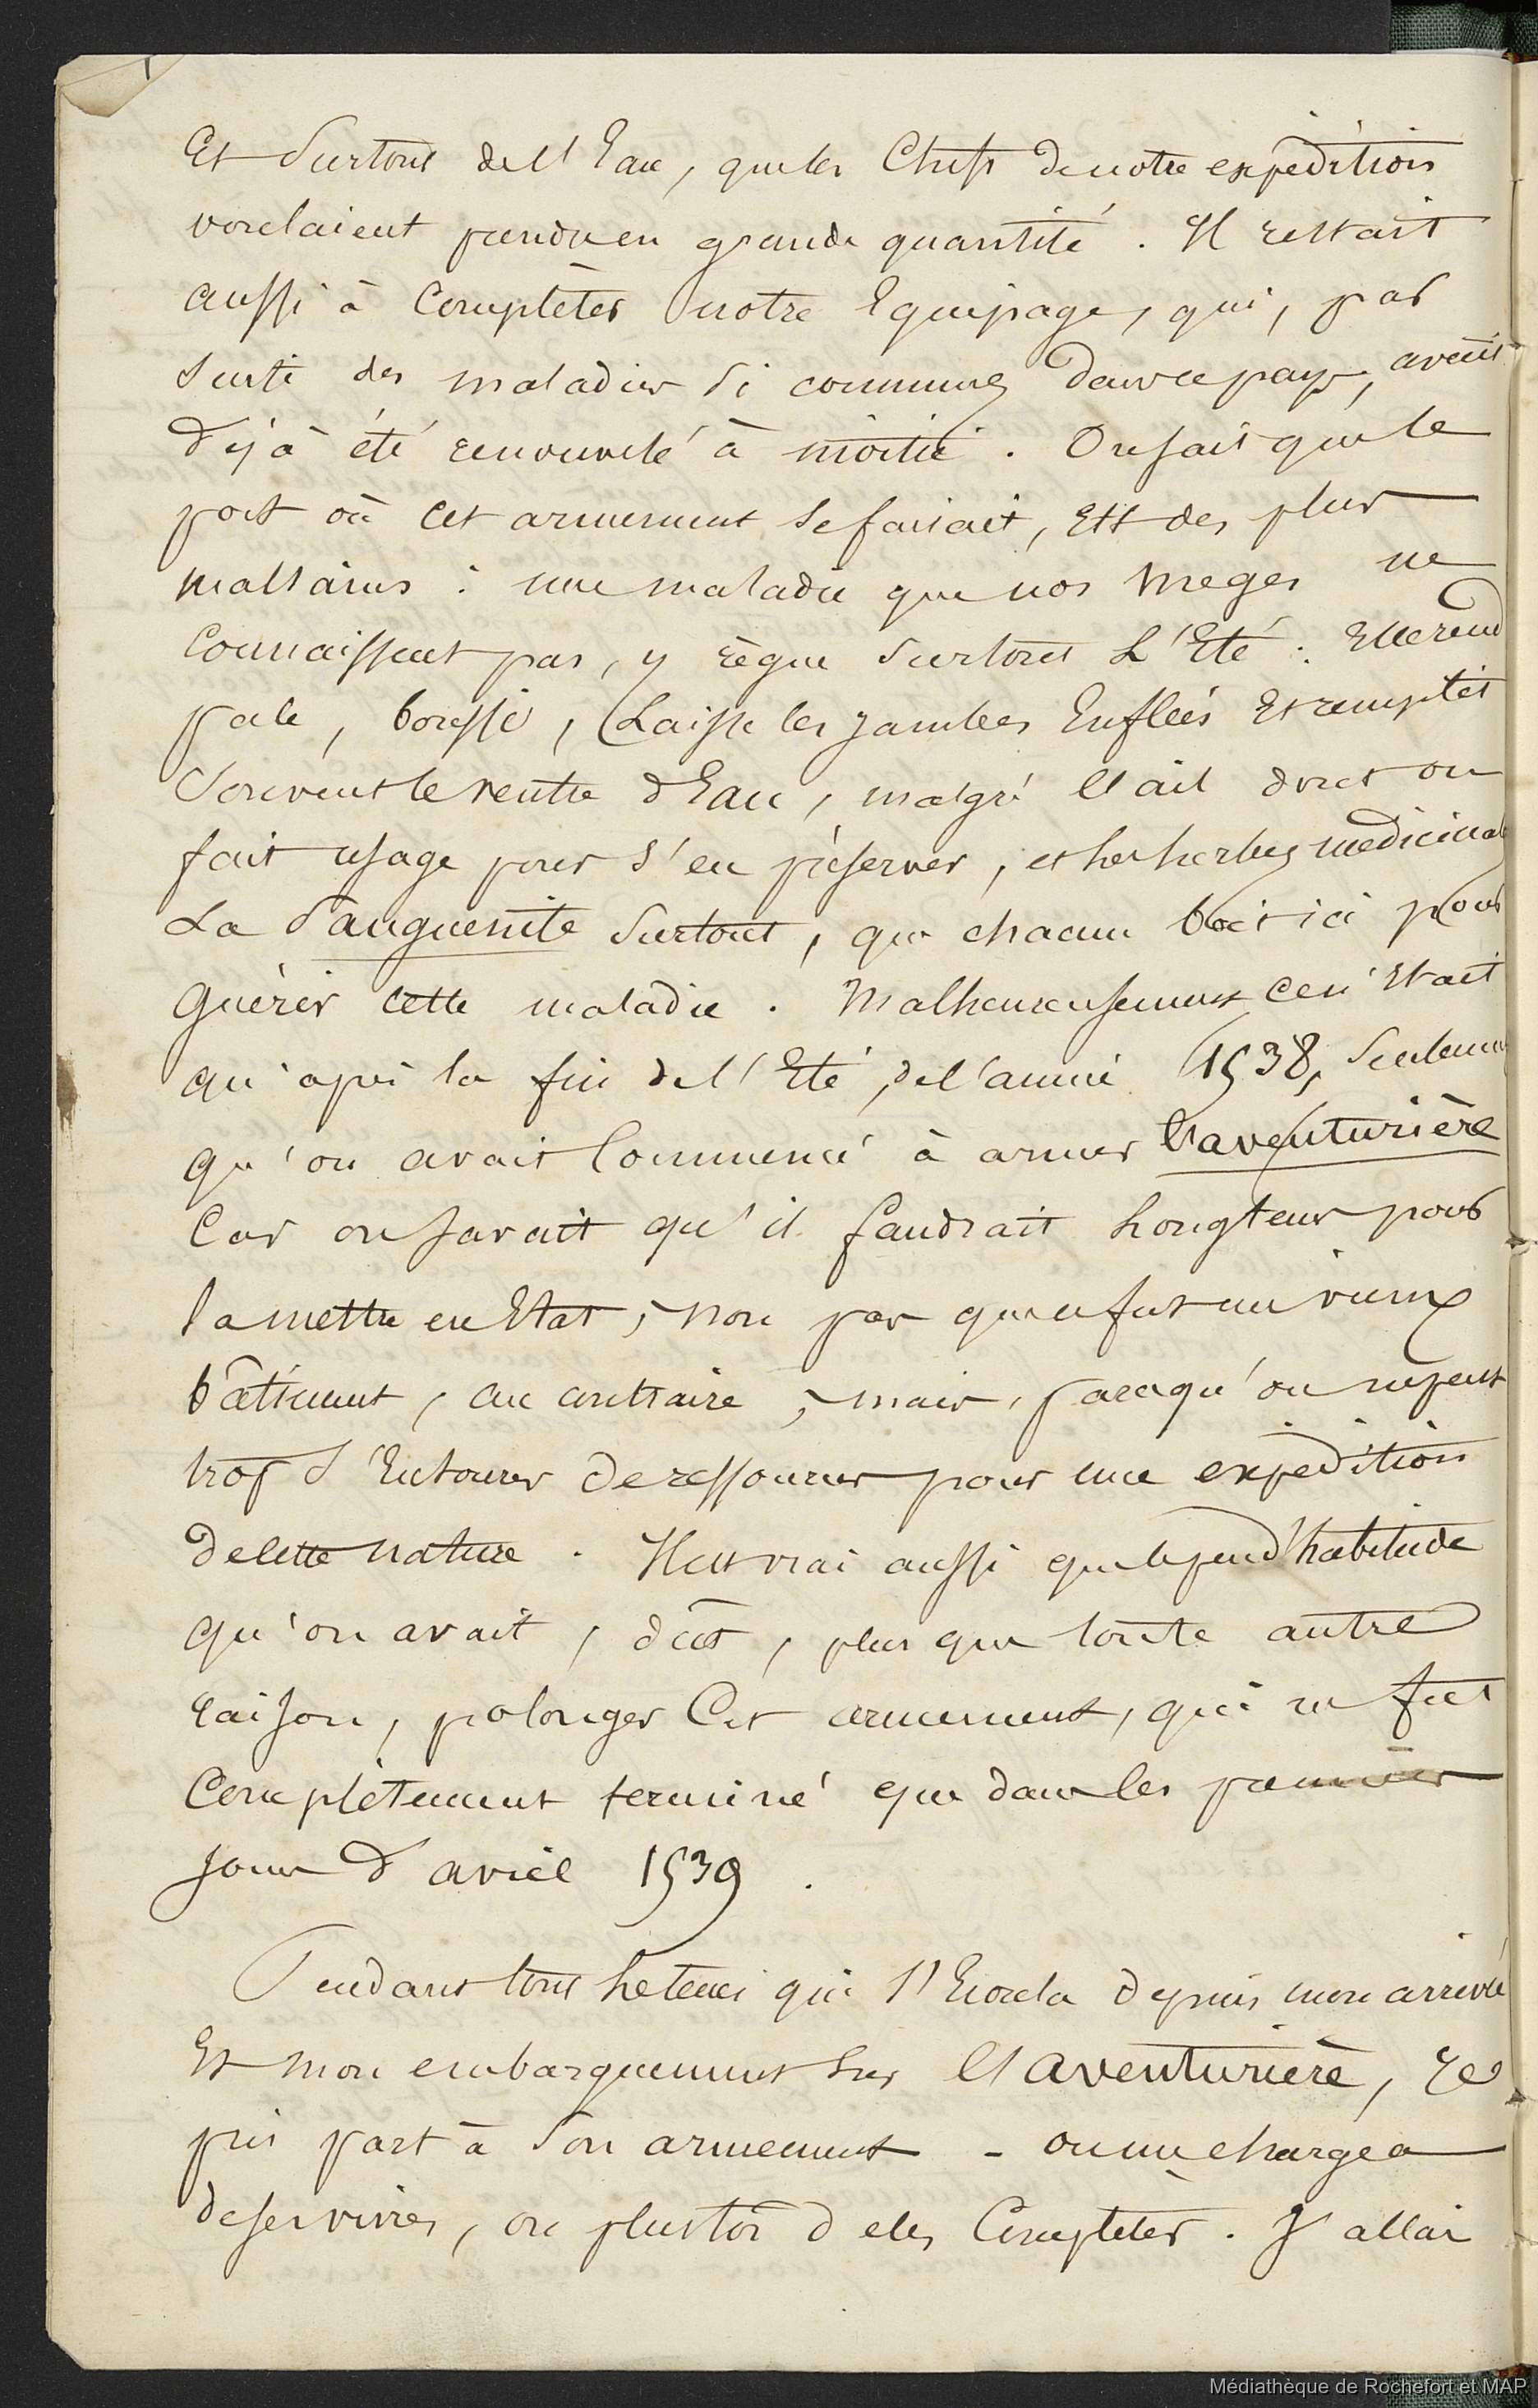 Et Surtout de l'Eau, que les Chefs de notre expédition
voulaient prendre en grande quantité. Il restait
aussi à Compléter notre Equipage, qui, par
suite des maladies si communes dans ce pays, avait
déjà été renouvelé à moitié. On sait que le
port où cet armement se faisait, Est des plus
malsains : une maladie que nos meges ne
Connaissent pas, y règne surtout L'Eté : Elle rend
pale, bouffi, Laisse les jambes Enflées Et remplit
Souvent le ventre d'Eau, malgré l'ail dont on
fait usage pour s'en préserver, et les herbes medicinal
La Sanguenite Surtout, que chacun boit ici pour
Guérir cette maladie. Malheureusement ce n'Etait
qu'après la fin de l'Eté, de l'année 1538, Seulement
qu'on avait Commencé à armer l'aventurière
Car on savait qu'il faudrait Longtems pour
la mettre en Etat, non pas que ce fut un vieux
bâtiment, au contraire, mais, parcequ'on ne peut
trop s'Entourer de ressources pour une expédition
de cette nature. Il est vrai aussi que le peu d'habitude
qu'on avait, dût, plus que toute autre
raison, prolonger Cet armement, qui ne fut
Complètement terminé que dans les premiers
Jours d'avril 1539.
Pendant tout le tems qui s'Ecoula depuis mon arrivée
Et mon embarquement Sur l'aventurière, Je
pris part à Son armement - on me chargea
de ses vivres, ou plustôt de les Compléter. J'allai
Médiathèque de Rochefort et MAP